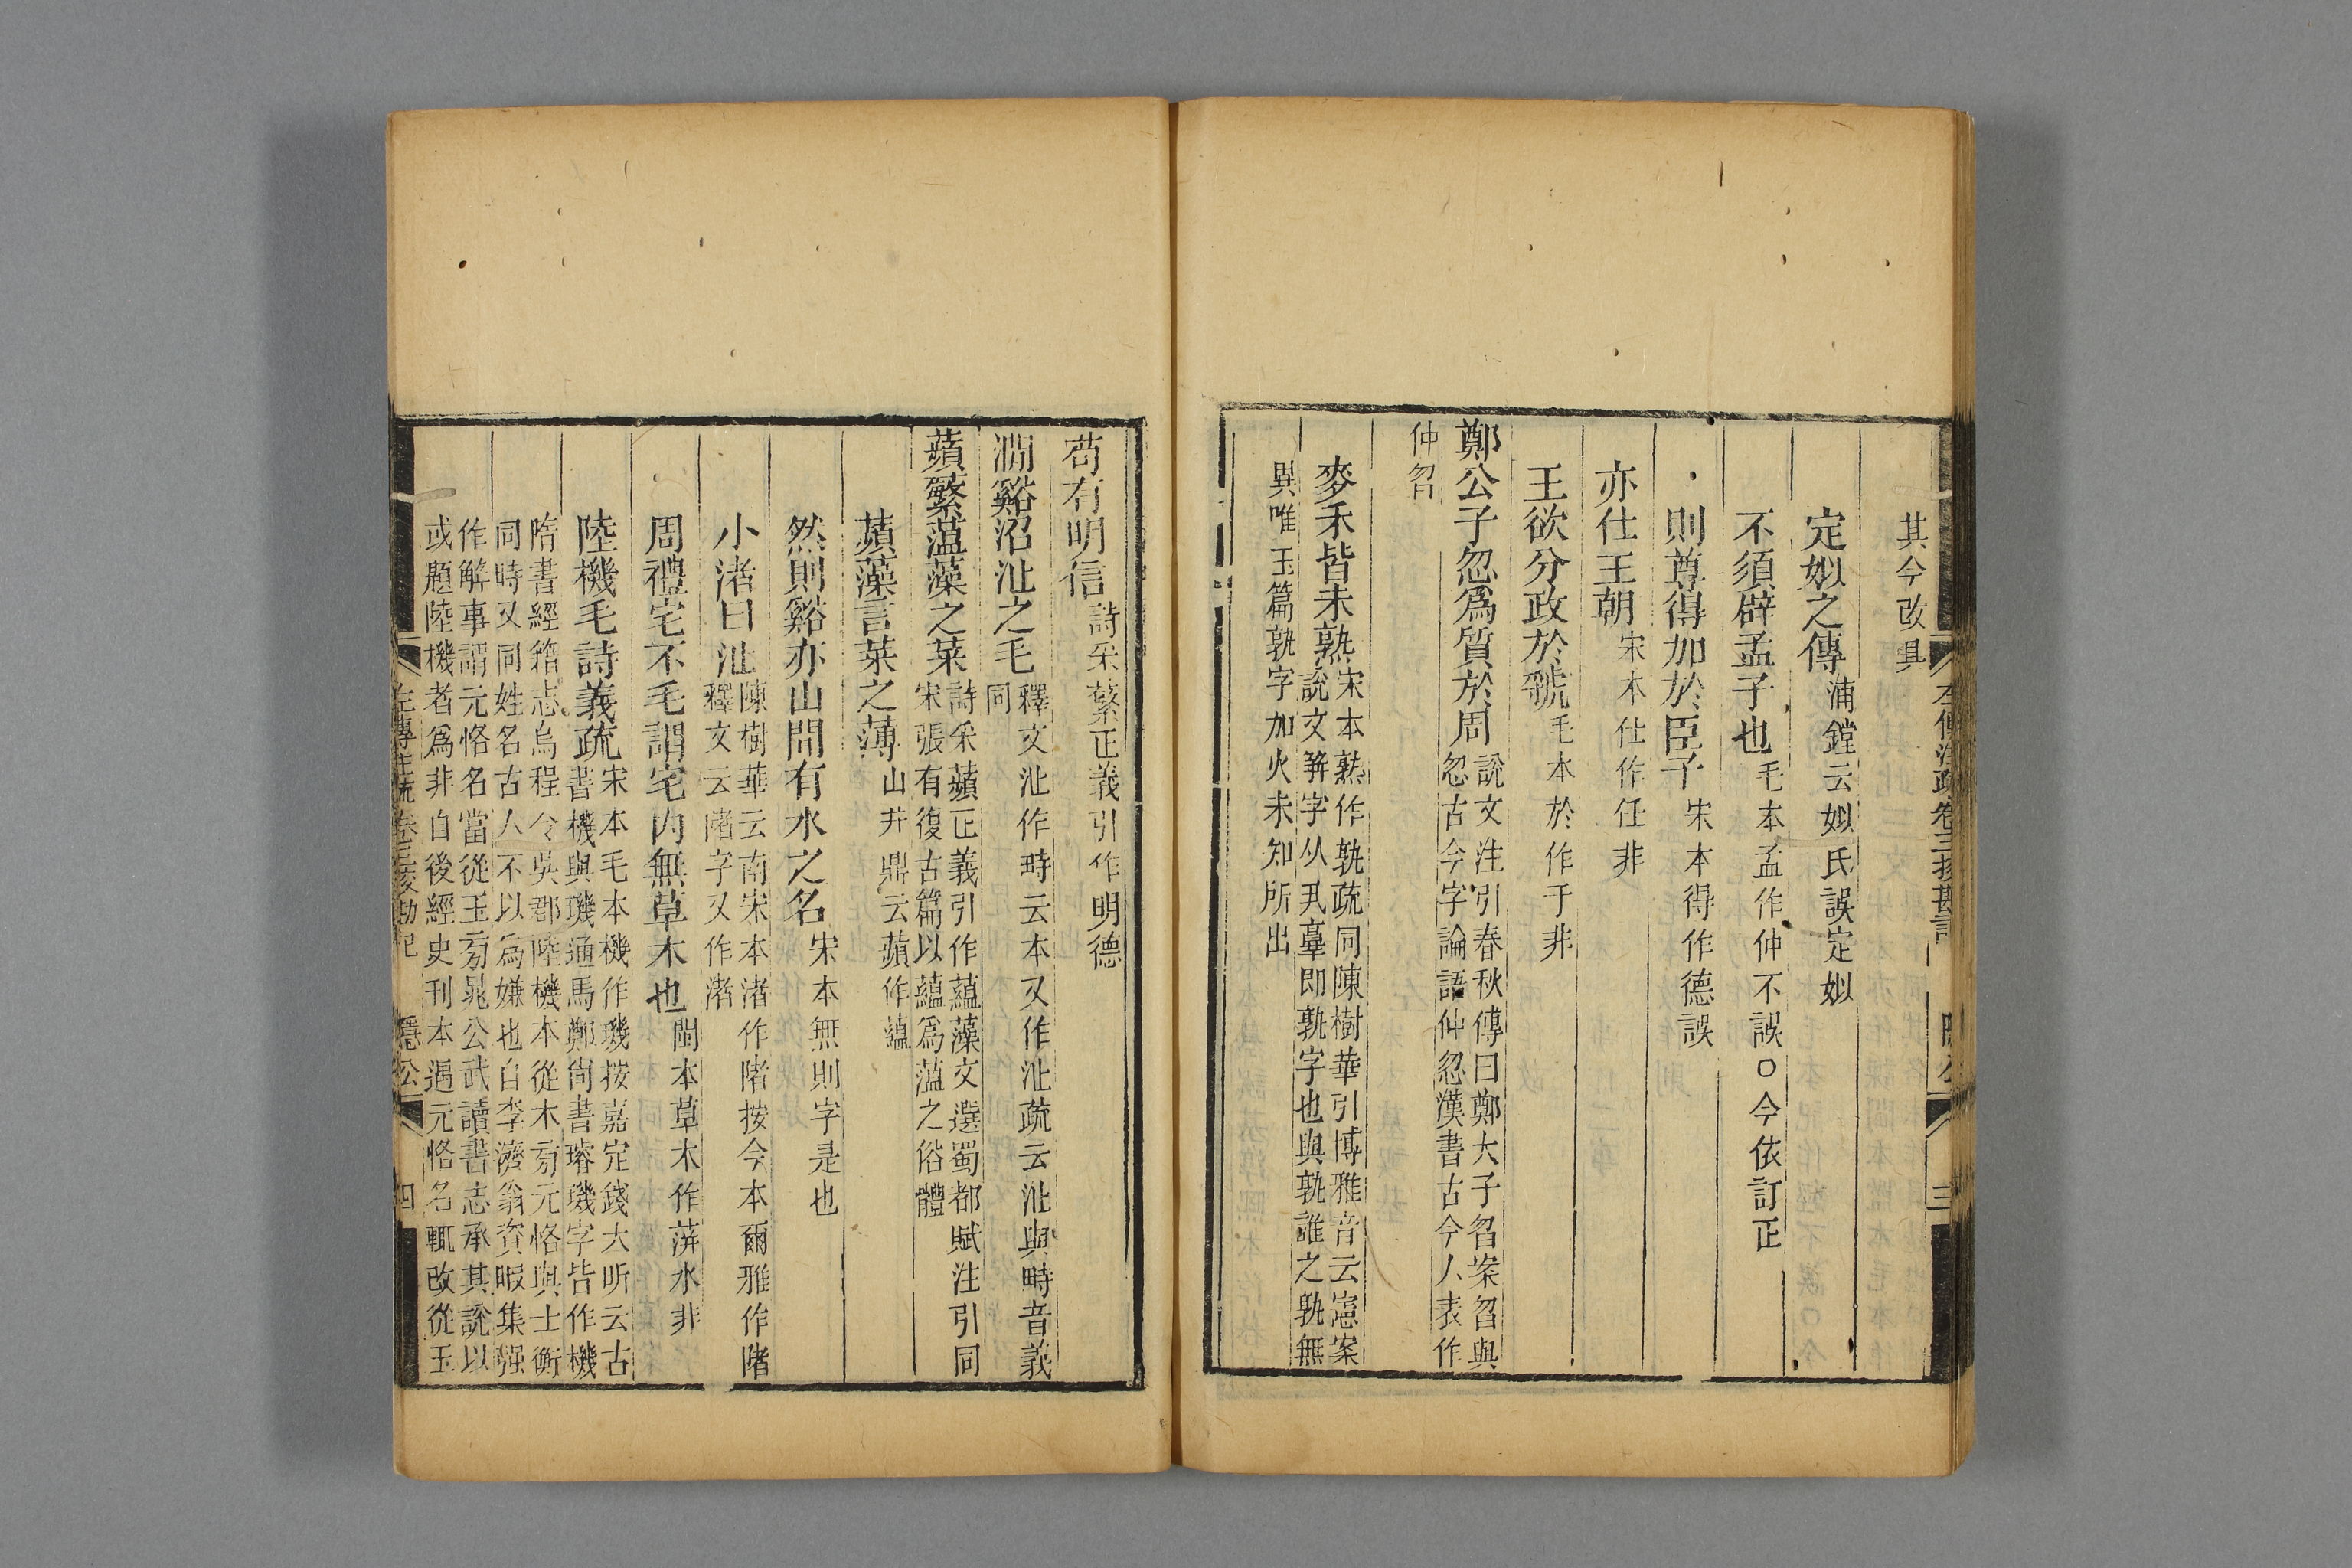 左傳注疏卷三挍勘記
隱公
三
其今改具
定姒之傳浦鏜云姒氏誤定姒
不須辟孟子也毛本孟作仲不誤○今依訂正
則尊得加於臣子宋本得作德誤
亦仕王朝宋本仕作任非
王欲分政於虢毛本於作于非
鄭公子忽爲質於周說文注引春秋傳曰鄭大子曶案曶與
忽古今字論語仲忽漢書古今人表作
仲曶
麥禾皆未熟宋本熟作孰疏同陳樹華引博雅音云憲案
說文𩰫字从丮𦎫即孰字也與孰誰之孰無
異唯玉篇孰字加火未知所出
苟有明信詩采蘩正義引作明德
澗谿沼沚之毛釋文沚作畤云本又作沚疏云沚與畤音義
同
蘋蘩薀藻之菜詩采蘋正義引作蘊藻文選蜀都賦注引同
宋張有復古篇以蘊爲薀之俗體
蘋藻言菜之薄山井鼎云蘋作蘊
然則谿亦山間有水之名宋本無則字是也
小渚曰沚陳樹華云南宋本渚作陼按今本爾雅作陼
釋文云陼字又作渚
周禮宅不毛謂宅內無草木也閩本草木作蓱水非
陸機毛詩義疏宋本毛本機作璣按嘉定錢大昕云古
書機與璣通馬鄭尙書璿璣字皆作機
隋書經籍志烏程令吳郡陸機本從木旁元恪與士衡
同時又同姓名古人不以爲嫌也自李濟翁資暇集強
作解事謂元恪名當從玉旁晁公武讀書志承其說以
或題陸機者爲非自後經史刊本遇元恪名輒改從玉
左傳注疏卷三挍勘記
隱公
四